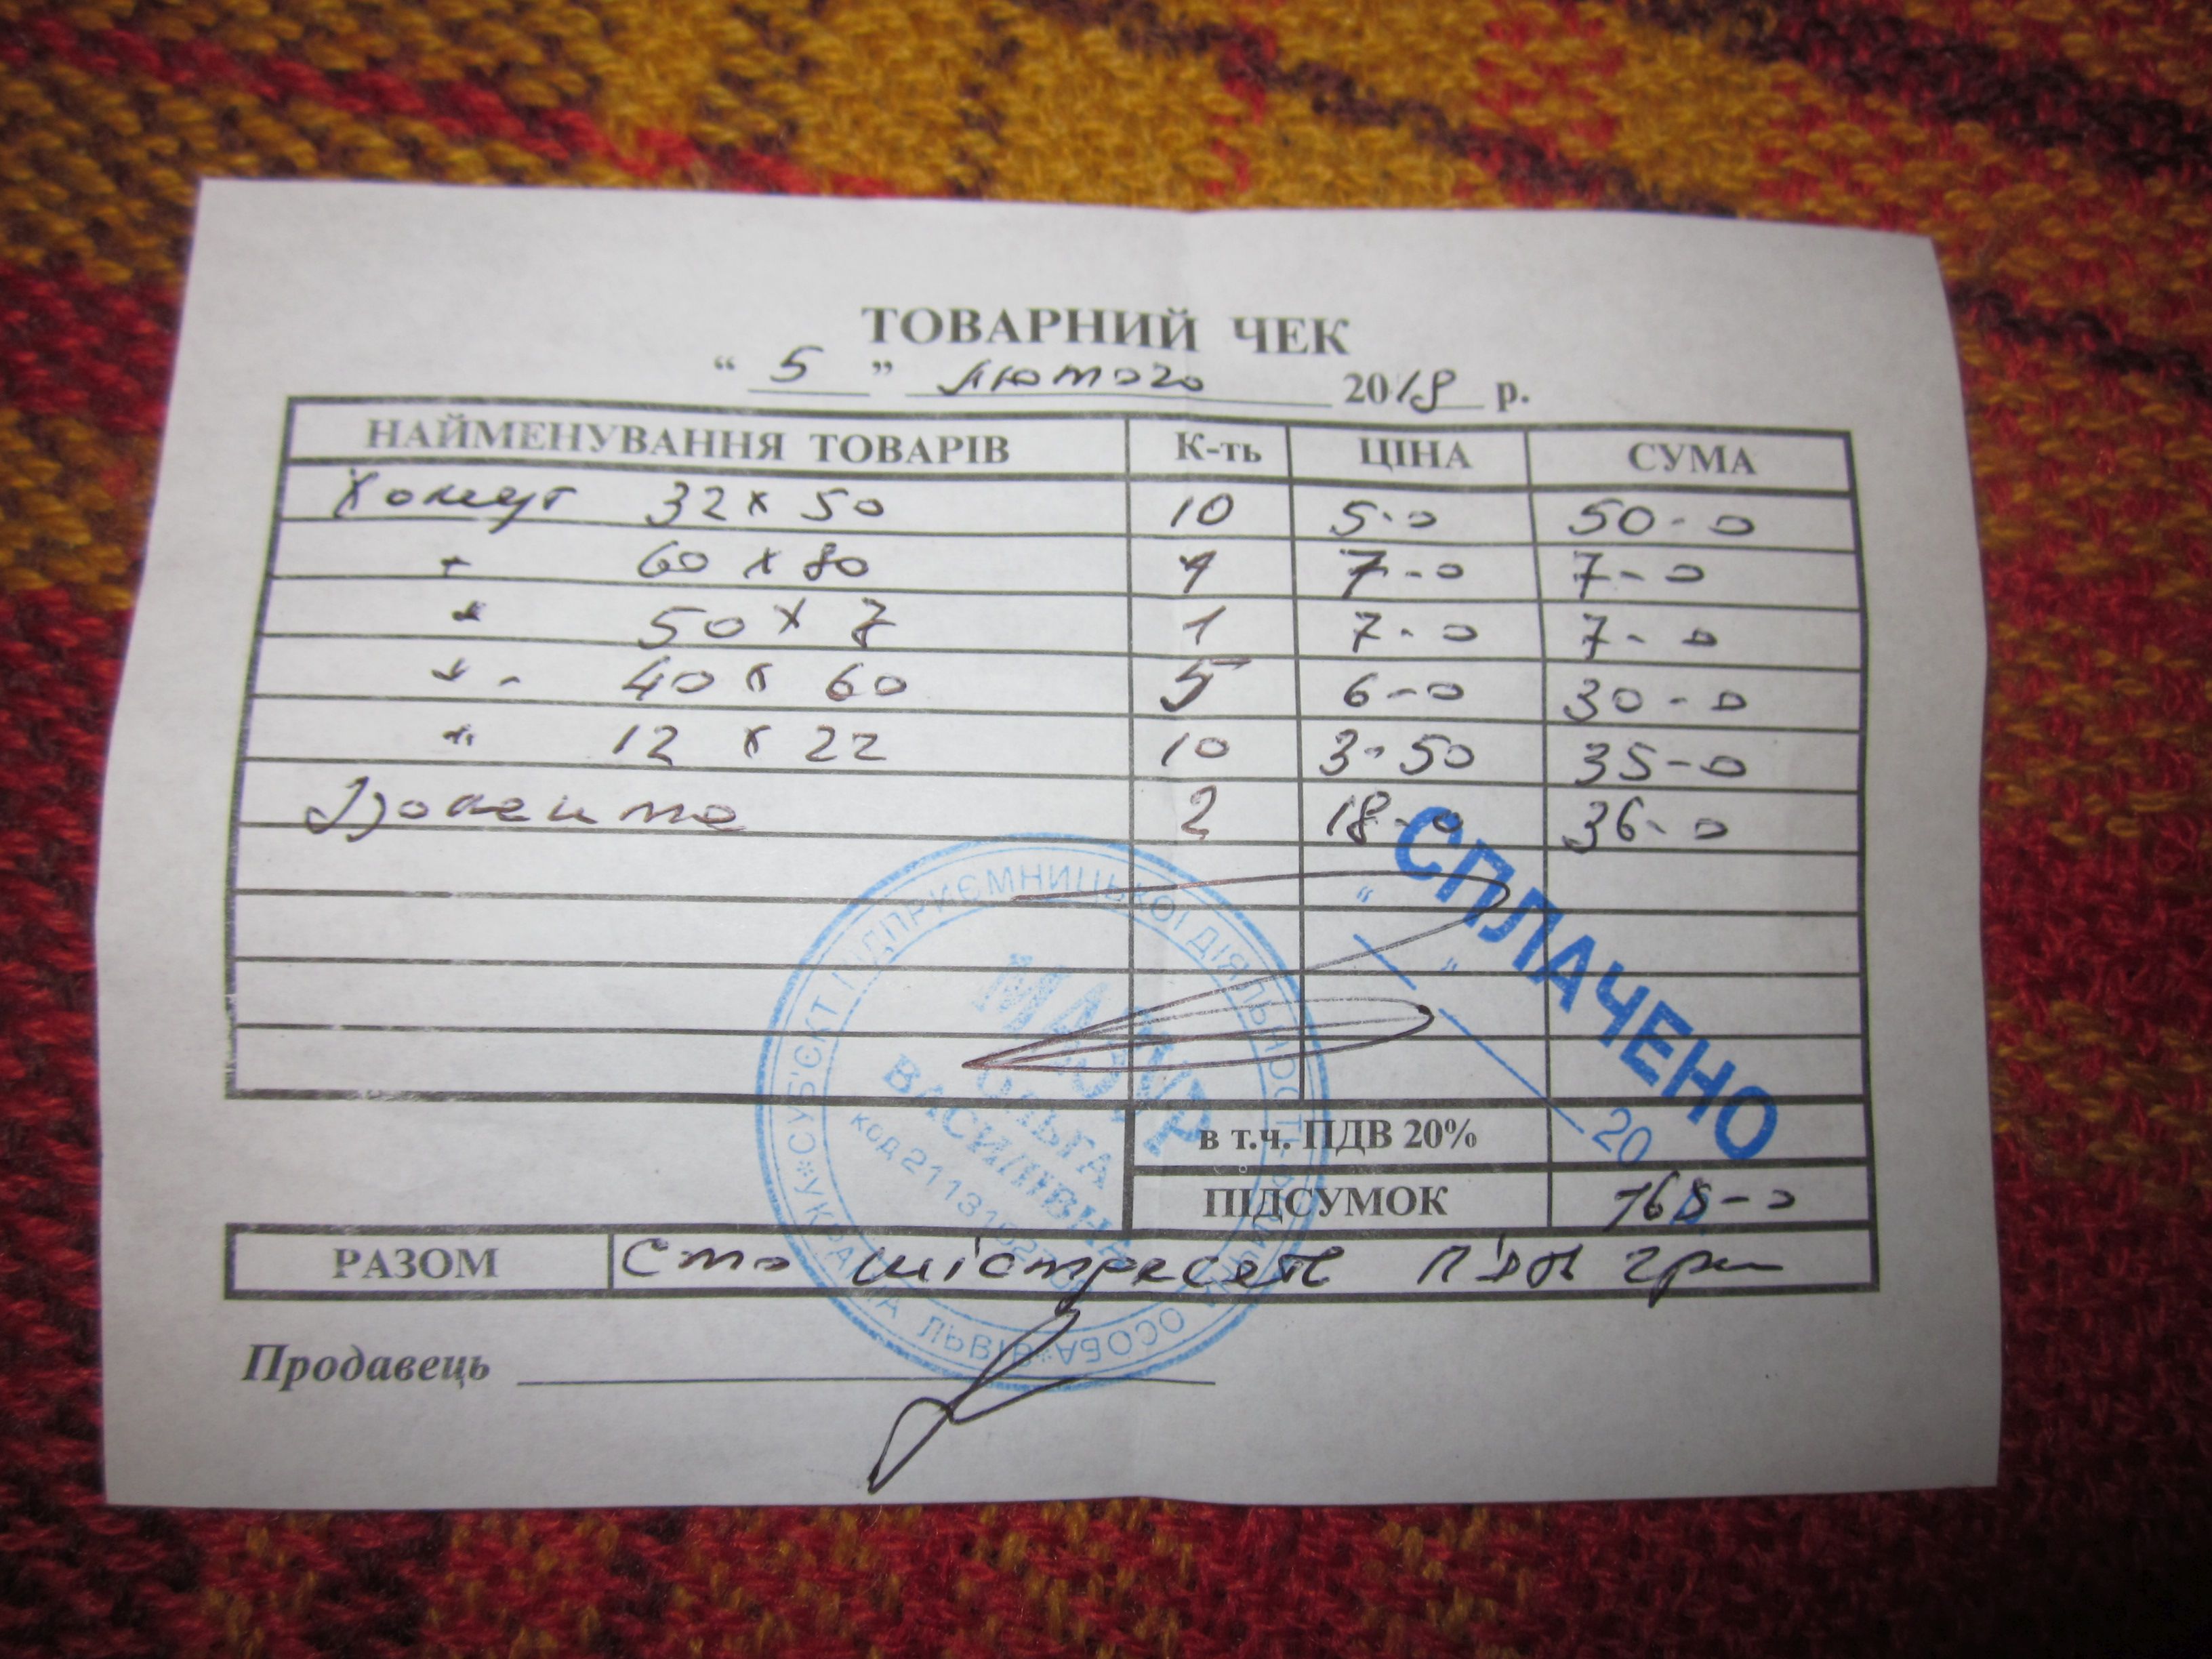 ТОВАРНИЙ ЧЕК
“ 5 ” лютого 2018 р.
НАЙМЕНУВАННЯ ТОВАРІВ К-ть ЦІНА СУМА
Хомут 32 х 50 10 5-0 50-0
60 х 80 1 7-0 7-0
50 х 7 1 7-0 7-0
40 х 60 5 6-0 30-0
12 х 22 10 3-50 35-0
2 18-0 36-0
СПЛАЧЕНО
“ ” 20
СУБ'ЄКТ ПІДПРИЄМНИЦЬКОЇ ДІЯЛЬНОСТІ ФІЗИЧНА ОСОБА*УКРАЇНА ЛЬВІВ*
МАЗУР
ОЛЬГА
ВАСИЛІВНА
код
в т.ч. ПДВ 20%
ПІДСУМОК 165-0
РАЗОМ Сто шістдесят п'ять грн
Продавець